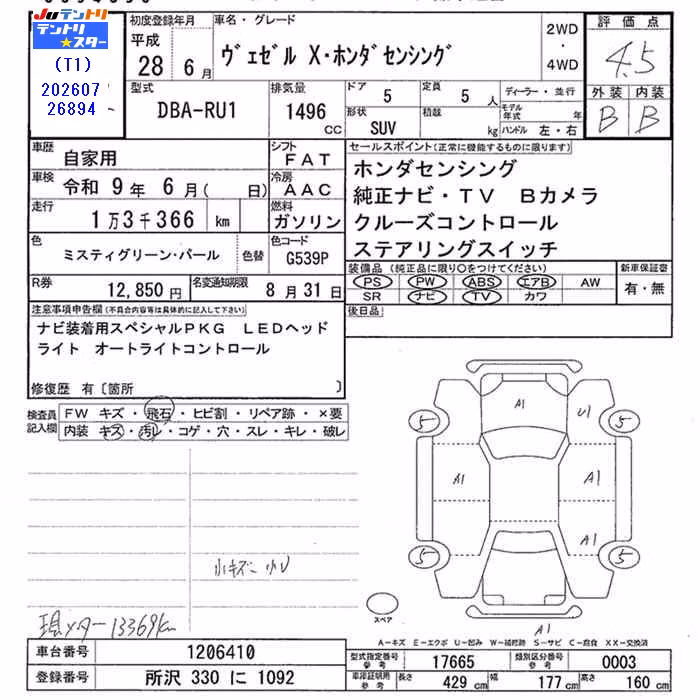 Juテントリ
テントリ★スター
(T1)
202607
26894
初度登録年月
平成
28 6月
車名・グレード
ヴェゼル X・ホンダセンシング
2WD
・
4WD
評価点
4.5
外装 内装
B B
型式
DBA-RU1
排気量
1496
CC
ドア
5
定員
5 人
形状
SUV
積載
kg
ディーラー・並行
モデル年式 年
ハンドル 左・右
車歴
自家用
シフト
FAT
車検
令和 9年 6月( 日)
冷房
AAC
走行
1万3千366 km
燃料
ガソリン
色
ミスティグリーン・パール
色替
色コード
G539P
R券
12,850円
名変通知期限
8月31日
セールスポイント(正常に機能するものに限ります)
ホンダセンシング
純正ナビ・TV Bカメラ
クルーズコントロール
ステアリングスイッチ
装備品(純正品に限り○をつけてください)
PS PW ABS エアB AW
SR ナビ TV カワ
新車保証書
有・無
後日品
注意事項申告欄(不具合内容等は具体的に記入して下さい)
ナビ装着用スペシャルPKG LEDヘッド
ライト オートライトコントロール
修復歴 有〔箇所 〕
検査員記入欄
FW キズ・飛石・ヒビ割・リペア跡・×要
内装 キズ・汚レ・コゲ・穴・スレ・キレ・破レ
A1
U1
5
5
A1
A1
A1
5
5
A1
スペア
小キズ 小U
現メーター13369km
A-キズ E-エクボ U-凹み W-補修跡 S-サビ C-腐食 XX-交換済
車台番号 1206410
登録番号 所沢 330 に 1092
型式指定番号 参考 17665
類別区分番号 参考 0003
車検証明用 参考
長さ 429 cm
幅 177 cm
高さ 160 cm